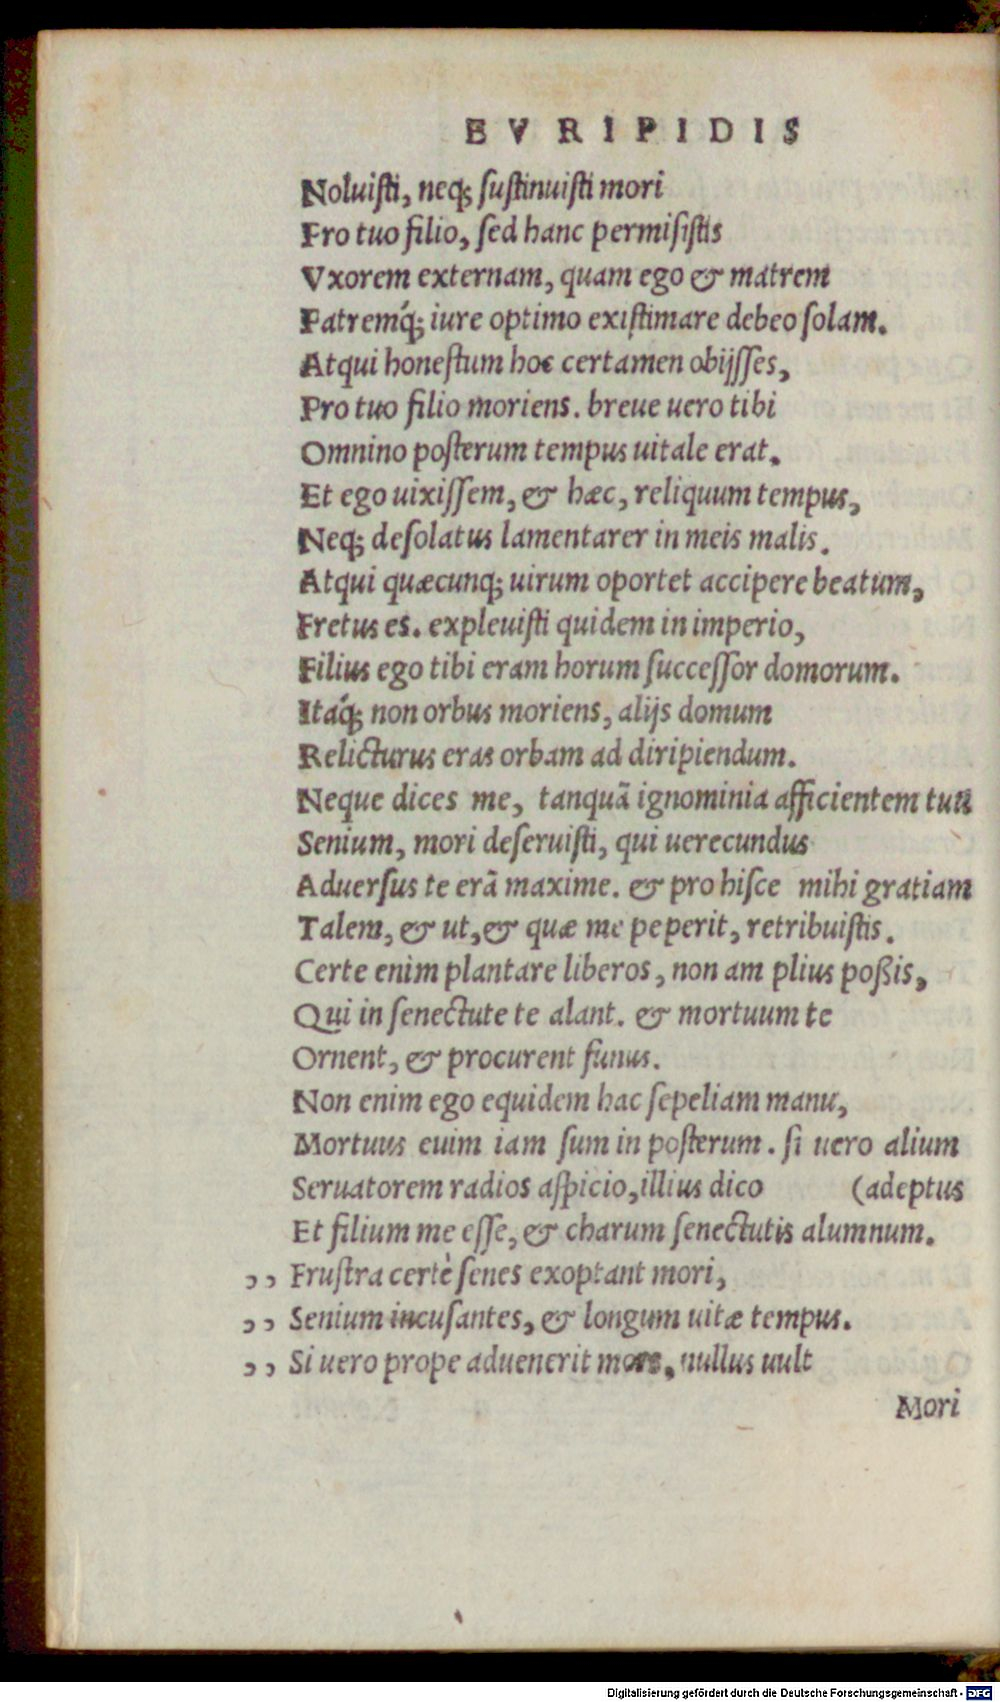 EVRIPIDIS
Noluisti, neq; sustinuisti mori
Pro tuo filio, sed hanc permisistis
Vxorem externam, quam ego & matrem
Patremq́; iure optimo existimare debeo solam.
Atqui honestum hoc certamen obijsses,
Pro tuo filio moriens. breue uero tibi
Omnino posterum tempus uitale erat.
Et ego uixissem, & hæc, reliquum tempus,
Neq; desolatus lamentarer in meis malis.
Atqui quæcunq; uirum oportet accipere beatum,
Fretus es. expleuisti quidem in imperio,
Filius ego tibi eram horum successor domorum.
Itaq́; non orbus moriens, alijs domum
Relicturus eras orbam ad diripiendum.
Neque dices me, tanquã ignominia afficientem tuũ
Senium, mori deseruisti, qui uerecundus
Aduersus te erã maxime. & pro hisce mihi gratiam
Talem, & ut, & quæ me peperit, retribuistis.
Certe enim plantare liberos, non am plius poßis,
Qui in senectute te alant. & mortuum te
Ornent, & procurent funus.
Non enim ego equidem hac sepeliam manu,
Mortuus euim iam sum in posterum. si uero alium
Seruatorem radios aspicio, illius dico (adeptus
Et filium me esse, & charum senectutis alumnum.
,, Frustra certè senes exoptant mori,
,, Senium incusantes, & longum uitæ tempus.
,, Si uero prope aduenerit mors, nullus uult
Mori
Digitalisierung gefördert durch die Deutsche Forschungsgemeinschaft - DFG